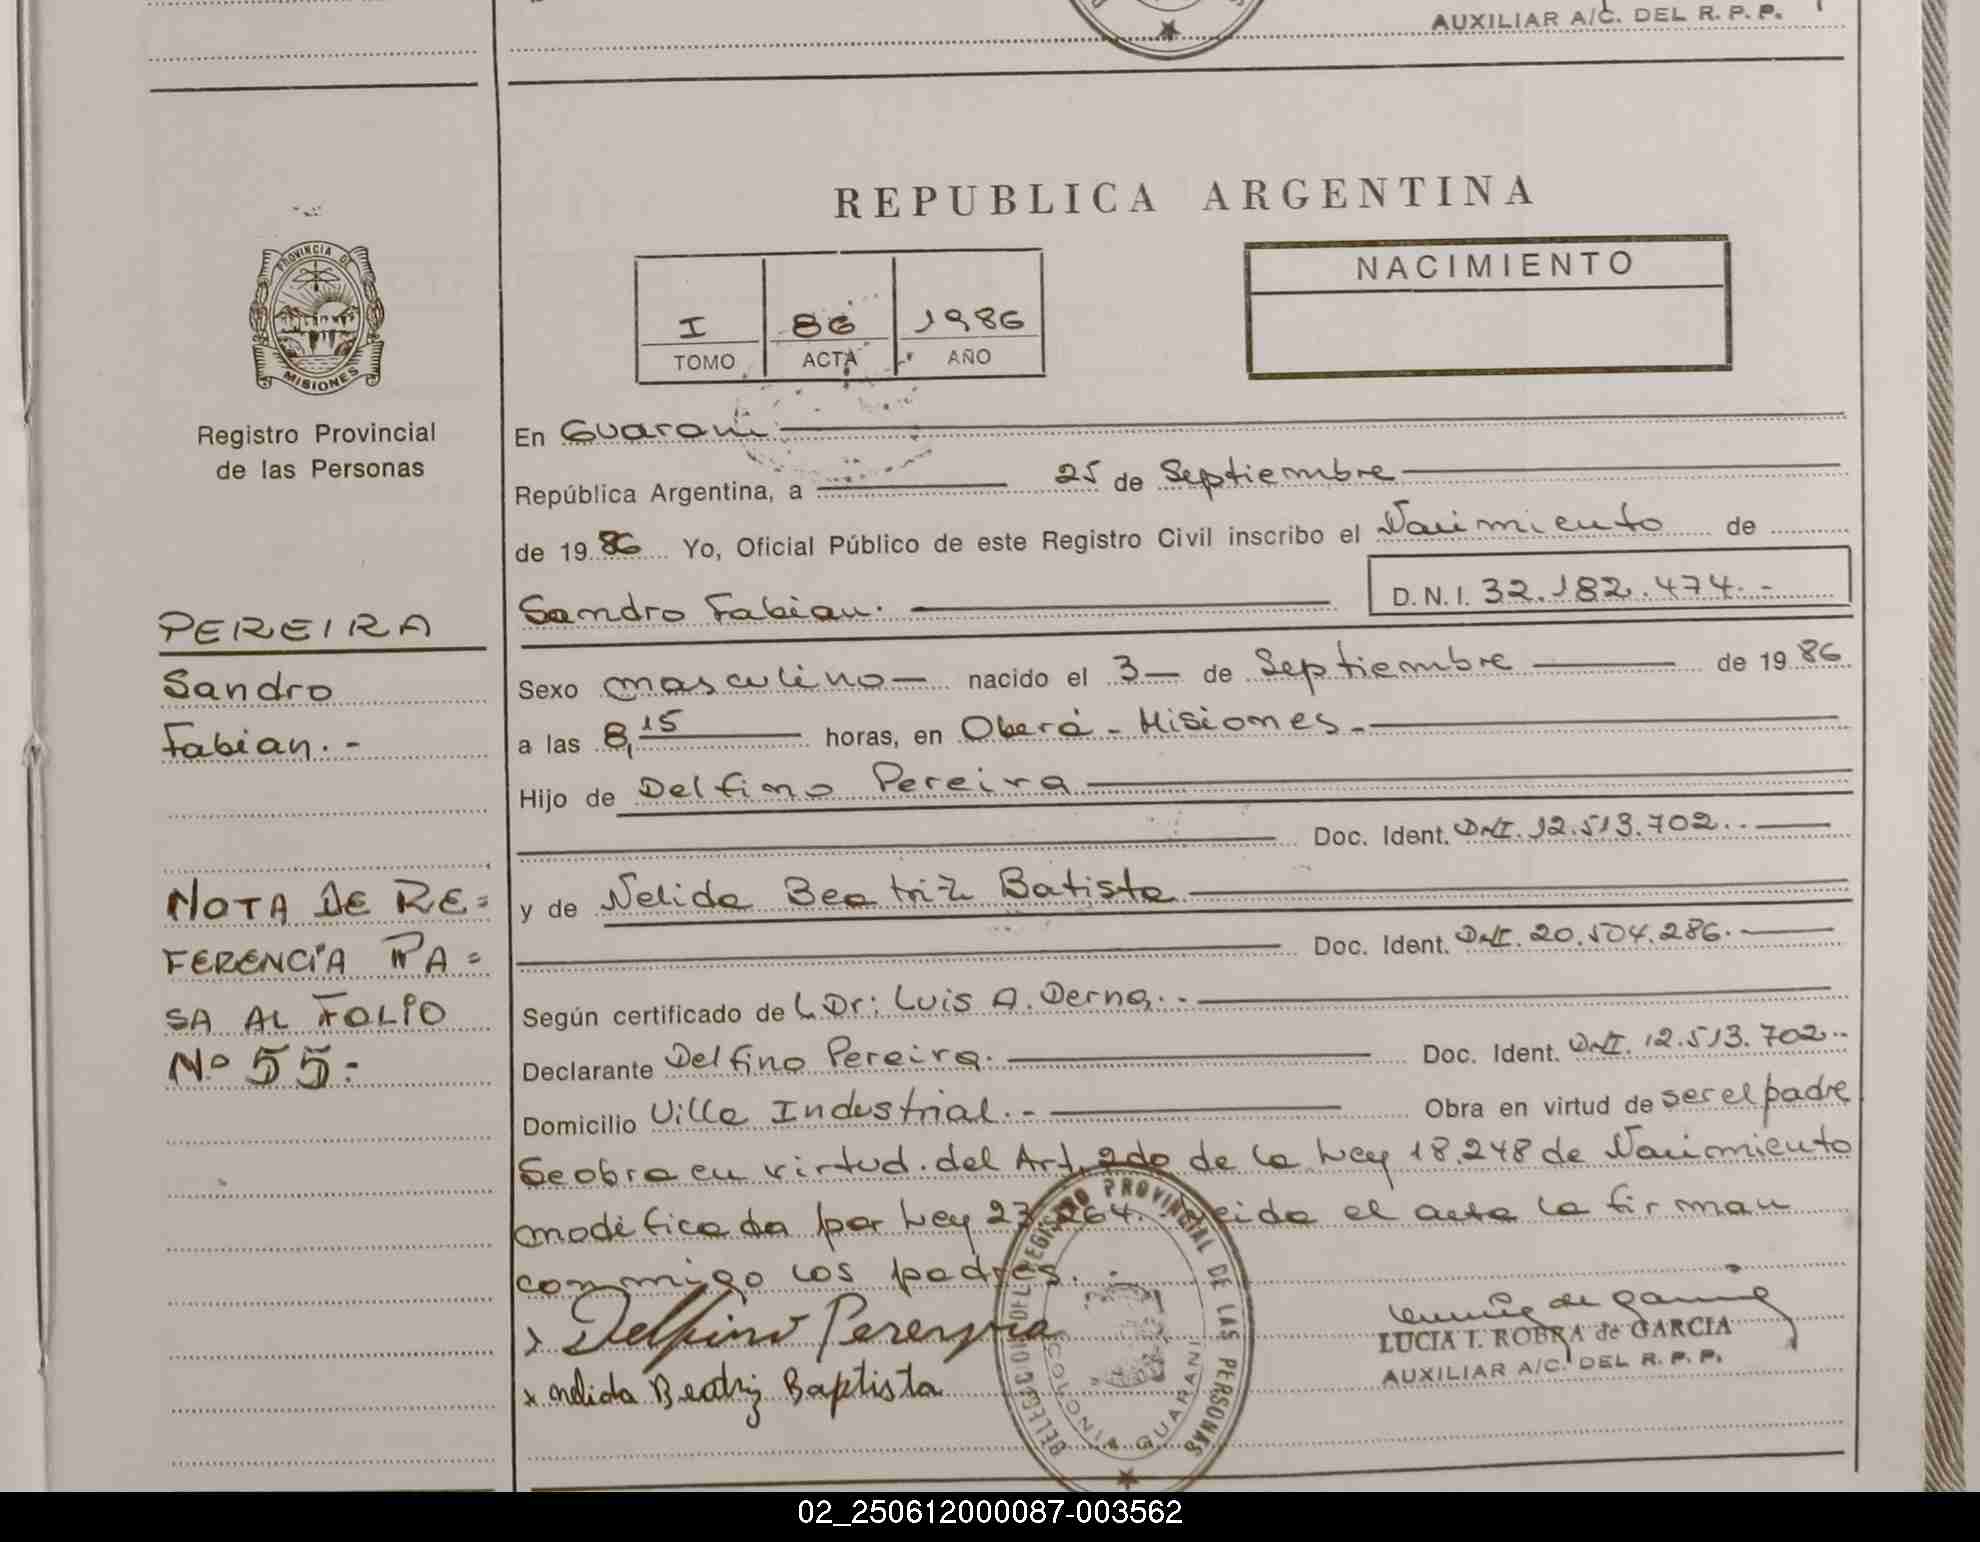 AUXILIAR A/C. DEL R. P. P.
REPUBLICA ARGENTINA
PROVINCIA DE
MISIONES
Registro Provincial
de las Personas
I 86 1986
TOMO ACTA AÑO
NACIMIENTO
En Guarani
República Argentina, a 25 de Septiembre
de 19 86 Yo, Oficial Público de este Registro Civil inscribo el Nacimiento de
Sandro Fabian. D.N.I. 32.182.474.-
Sexo masculino nacido el 3 de Septiembre de 19 86
a las 8,15 horas, en Oberá - Misiones.-
Hijo de Delfino Pereira
Doc. Ident. DNI. 12.513.702.-
y de Nelida Beatriz Batista
Doc. Ident. DNI. 20.504.286.
Según certificado de L Dr: Luis A. Derna.-
Declarante Delfino Pereira. Doc. Ident. DNI. 12.513.702.-
Domicilio Villa Industrial.- Obra en virtud de ser el padre
Se obra en virtud del Art. 2do de la Ley 18.248 de Nacimiento
modificada por Ley 23.264. Leida el acta la firman
conmigo los padres.
x Delfino Pereyra
x nelida Beatriz Baptista
LUCIA I. ROBRA de GARCIA
AUXILIAR A/C. DEL R. P. P.
DELEGACION DEL REGISTRO PROVINCIAL DE LAS PERSONAS
GUARANI
PEREIRA
Sandro
Fabian.-
NOTA DE RE=
FERENCIA PA=
SA AL FOLIO
Nº 55.-
02_250612000087-003562